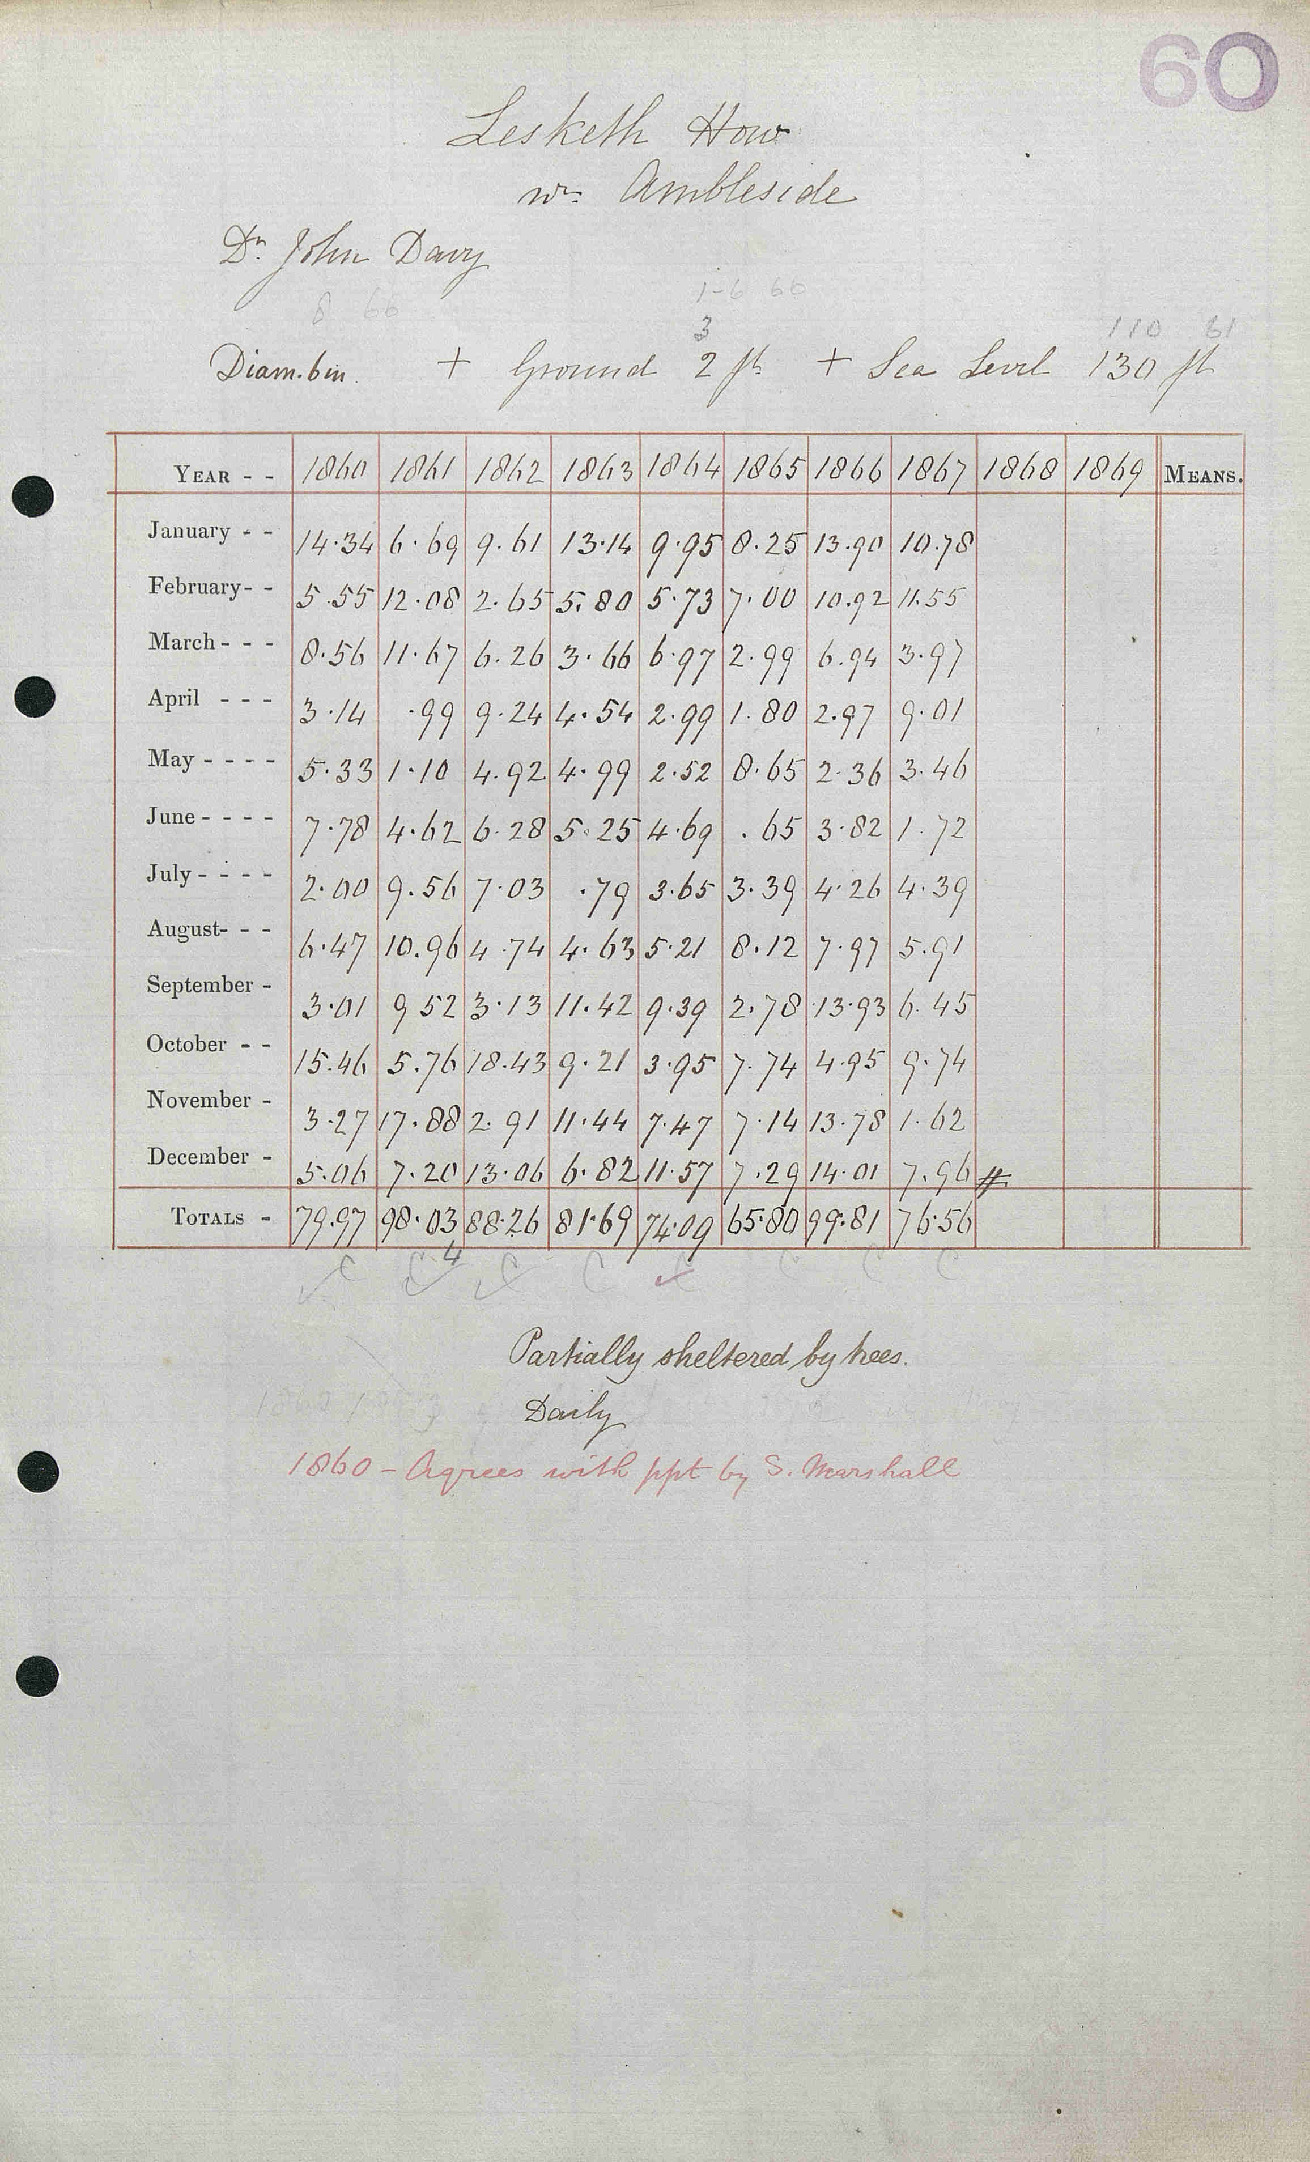 60
Lesketh How
nr. Ambleside
Dr. John Davy
8 66 1-6 66
3 110 61
Diam. 6in. + Ground 2 ft + Sea Level 130 ft
YEAR - - 1860 1861 1862 1863 1864 1865 1866 1867 1868 1869 MEANS.
January - - 14.34 6.69 9.61 13.14 9.95 8.25 13.90 10.78
February - - 5.55 12.08 2.65 5.80 5.73 7.00 10.92 11.55
March - - - 8.56 11.67 6.26 3.66 6.97 2.99 6.94 3.97
April - - - 3.14 .99 9.24 4.54 2.99 1.80 2.97 9.01
May - - - - 5.33 1.10 4.92 4.99 2.52 8.65 2.36 3.46
June - - - - 7.78 4.62 6.28 5.25 4.69 .65 3.82 1.72
July - - - - 2.00 9.56 7.03 .79 3.65 3.39 4.26 4.39
August - - - 6.47 10.96 4.74 4.63 5.21 8.12 7.97 5.91
September - 3.01 9 52 3.13 11.42 9.39 2.78 13.93 6.45
October - - 15.46 5.76 18.43 9.21 3.95 7.74 4.95 9.74
November - 3.27 17.88 2.91 11.44 7.47 7.14 13.78 1.62
December - 5.06 7.20 13.06 6.82 11.57 7.29 14.01 7.96 #
TOTALS - 79.97 98.03 88.26 81.69 74.09 65.80 99.81 76.56
C C 4 C C C C C C
Partially sheltered by trees.
Daily
1860 - Agrees with ppt by S. Marshall